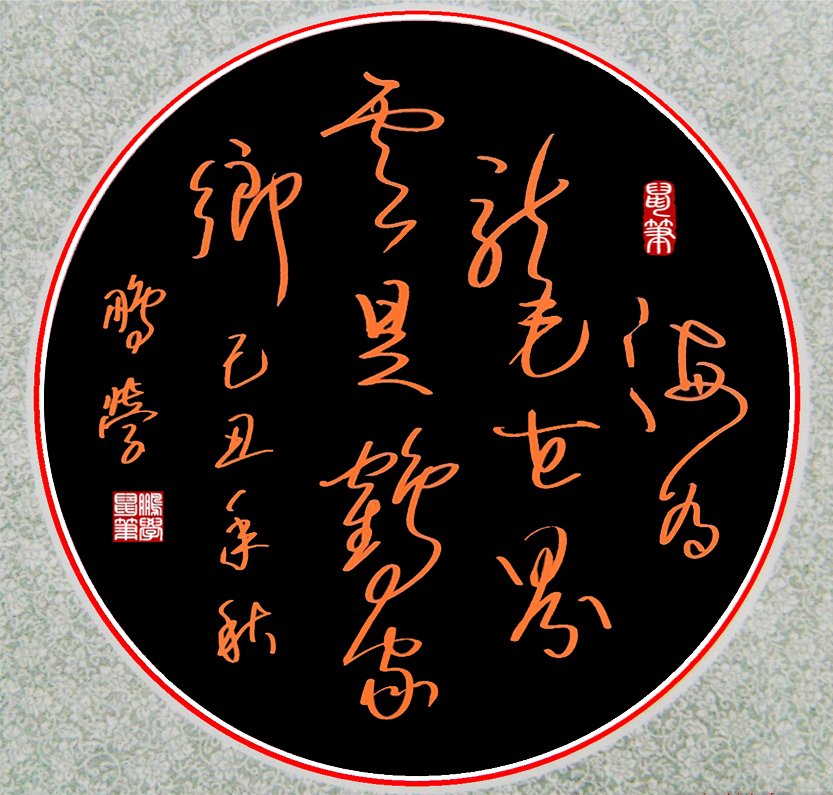 鼠筆
海為
龍世界
雲是鶴家
鄉 己丑年秋
鵬學
鵬學
鼠筆